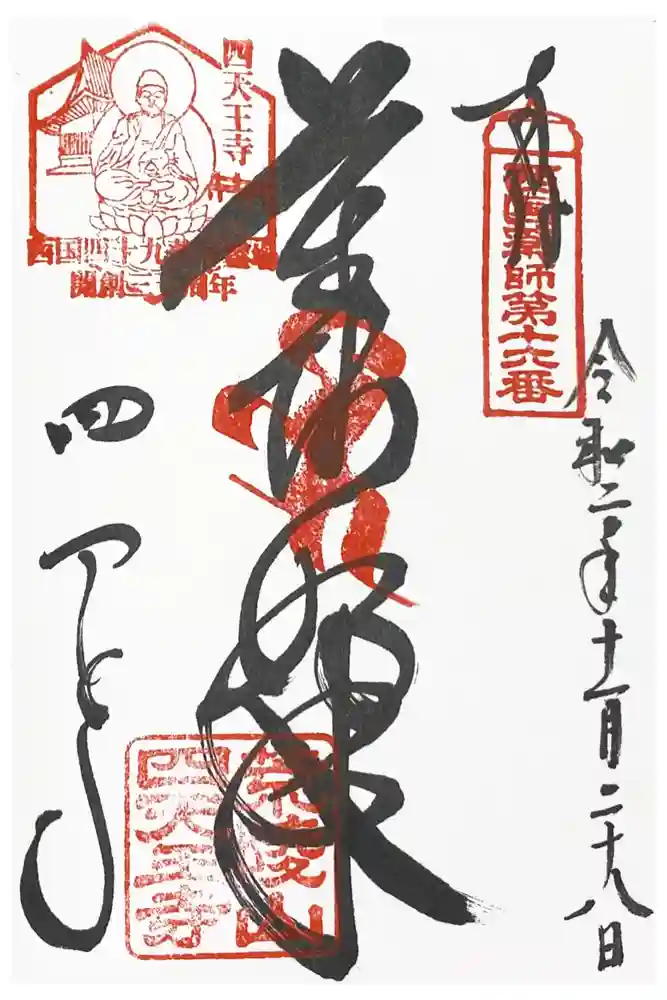 奉拝
西国薬師第十六番
令和二年十一月二十八日
薬師如来
荒陵山
四天王寺
四天王寺
西国四十九薬
開創三十周年
四天王寺